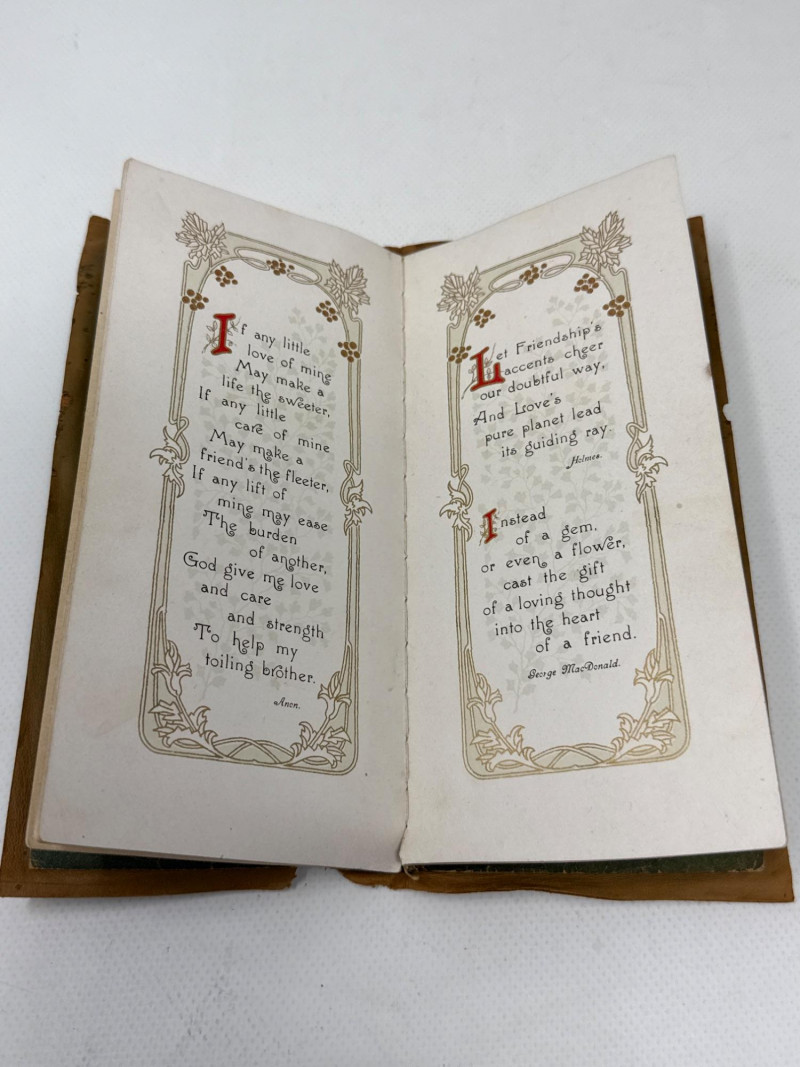 If any little
love of mine
May make a
life the sweeter,
If any little
care of mine
May make a
friend's the fleeter,
If any lift of
mine may ease
The burden
of another,
God give me love
and care
and strength
To help my
toiling brother.
Anon.
Let Friendship's
accents cheer
our doubtful way,
And Love's
pure planet lead
its guiding ray.
Holmes.
Instead
of a gem,
or even a flower,
cast the gift
of a loving thought
into the heart
of a friend.
George MacDonald.